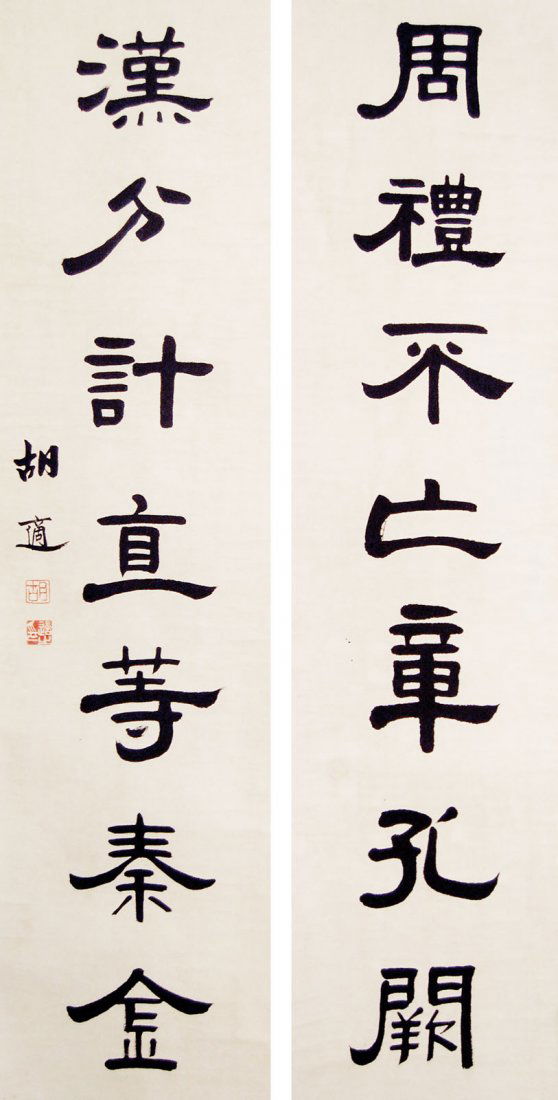 周禮不亡章孔闕
漢分計直等秦金
胡適
胡